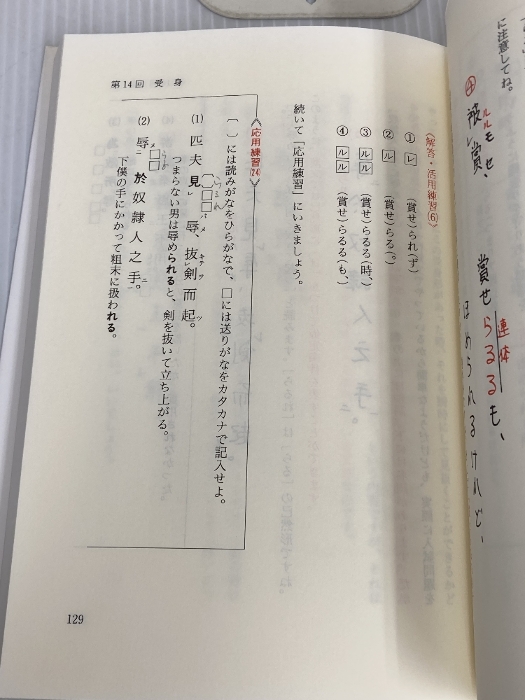 に注意してね。
④ 被レ賞ルルモセ、
賞せらるるも、
連体
ほめられるけれど、
〈解答・活用練習(6)〉
① レ (賞せ)られ(ず)
② ル (賞せ)らる(。)
③ ルル (賞せ)らるる(時、)
④ ルル (賞せ)らるる(も、)
続いて「応用練習」にいきましょう。
〈応用練習(24)〉
〔 〕には読みがなをひらがなで、□には送りがなをカタカナで記入せよ。
(1) 匹夫見レ辱、抜レ剣而起。
つまらない男は辱められると、剣を抜いて立ち上がる。
(2) 辱二於奴隷人之手一。
下僕の手にかかって粗末に扱われる。
第14回 受 身
129